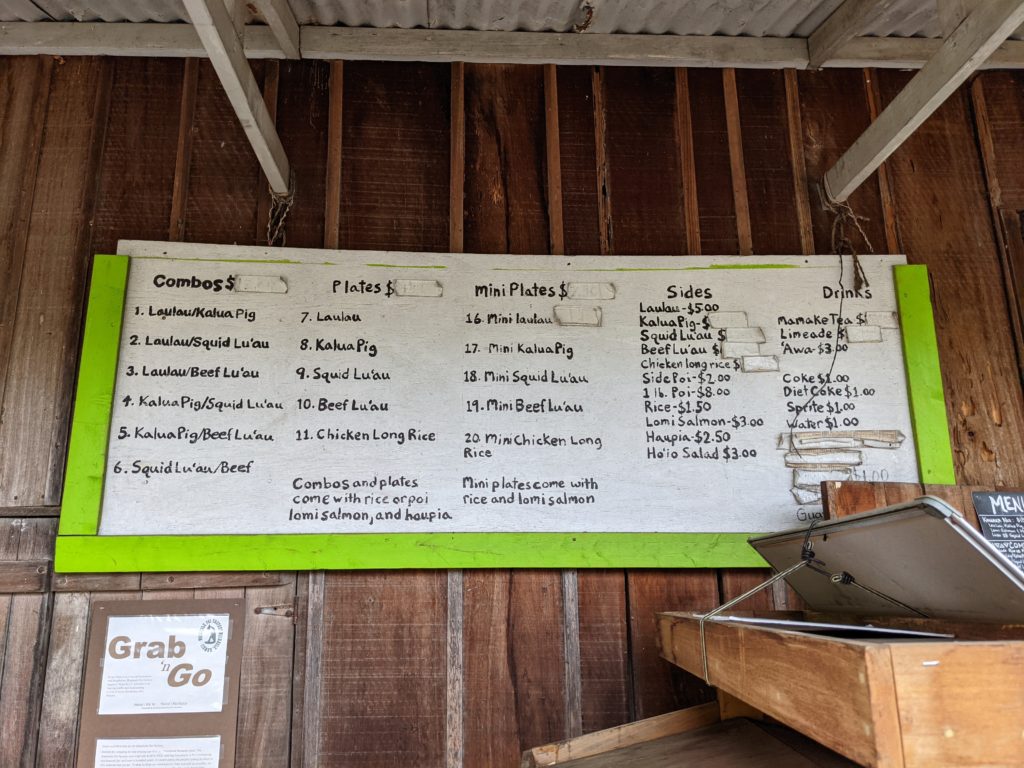 Combos $
1. Laulau/Kalua Pig
2. Laulau/Squid Lu'au
3. Laulau/Beef Lu'au
4. Kalua Pig/Squid Lu'au
5. Kalua Pig/Beef Lu'au
6. Squid Lu'au/Beef
Plates $
7. Laulau
8. Kalua Pig
9. Squid Lu'au
10. Beef Lu'au
11. Chicken Long Rice
Combos and plates
come with rice or poi
lomi salmon, and haupia
Mini Plates $
16. Mini laulau
17. Mini Kalua Pig
18. Mini Squid Lu'au
19. Mini Beef Lu'au
20. Mini Chicken Long
Rice
Mini plates come with
rice and lomi salmon
Sides
Laulau-$5.00
Kalua Pig-$
Squid Lu'au $
Beef Lu'au $
Chicken long rice $
Side Poi-$2.00
1 lb. Poi-$8.00
Rice-$1.50
Lomi Salmon-$3.00
Haupia-$2.50
Ho'io Salad $3.00
Drinks
Mamake Tea $
Limeade $
'Awa-$3.00
Coke $1.00
Diet Coke $1.00
Sprite $1.00
Water $1.00
$1.00
Grab
'n
Go